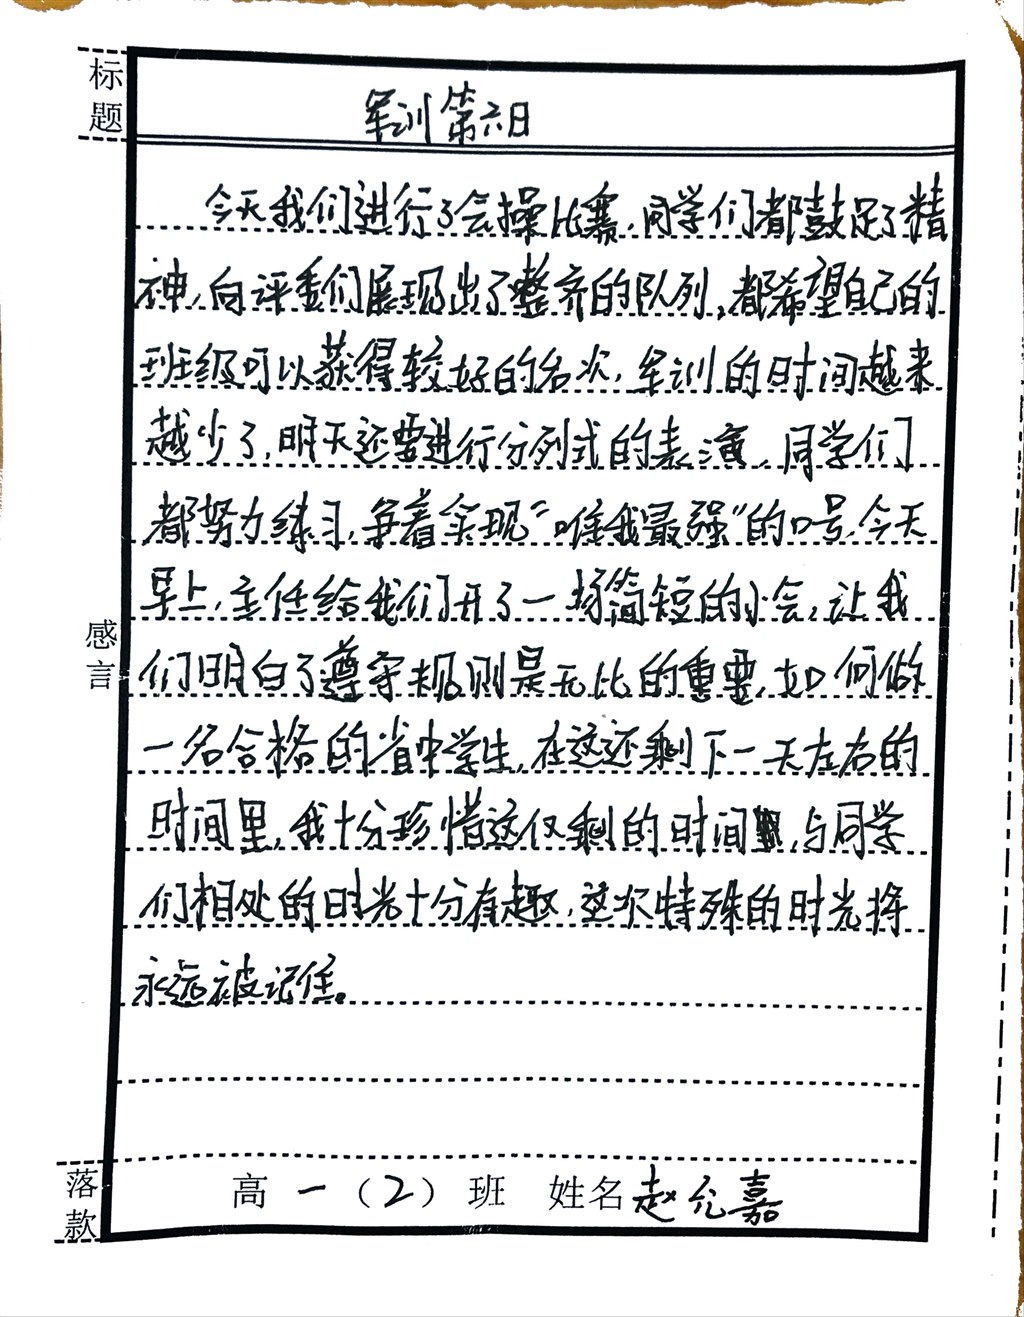 标题
军训第六日
今天我们进行了会操比赛,同学们都鼓足了精
神,向评委们展现出了整齐的队列,都希望自己的
班级可以获得较好的名次,军训的时间越来
越少了,明天还要进行分列式的表演,同学们
都努力练习,争着实现“唯我最强”的口号,今天
早上,主任给我们开了一场简短的小会,让我
们明白了遵守规则是无比的重要,如何做
一名合格的省中学生,在这还剩下一天左右的
时间里,我十分珍惜这仅剩的时间里,与同学
们相处的时光十分有趣,这次特殊的时光将
永远被记住。
感言
落款
高一(2)班 姓名赵允嘉